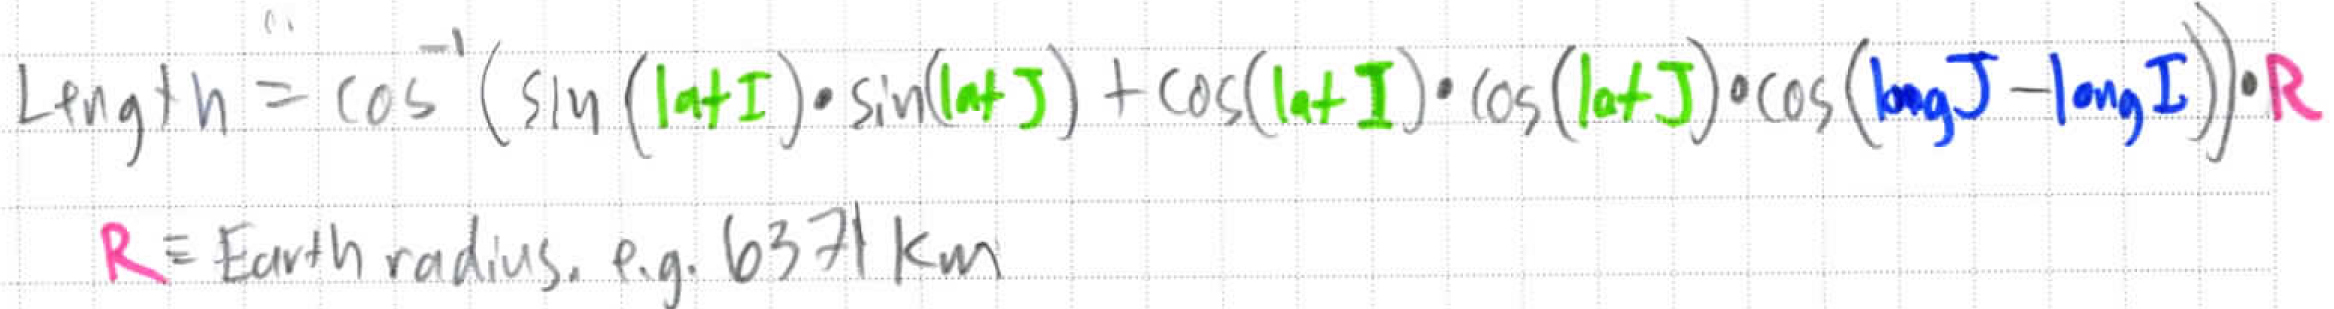 Length = cos⁻¹(sin(latI)•sin(latJ)+cos(latI)•cos(latJ)•cos(longJ-longI))•R
R = Earth radius. e.g. 6371 km